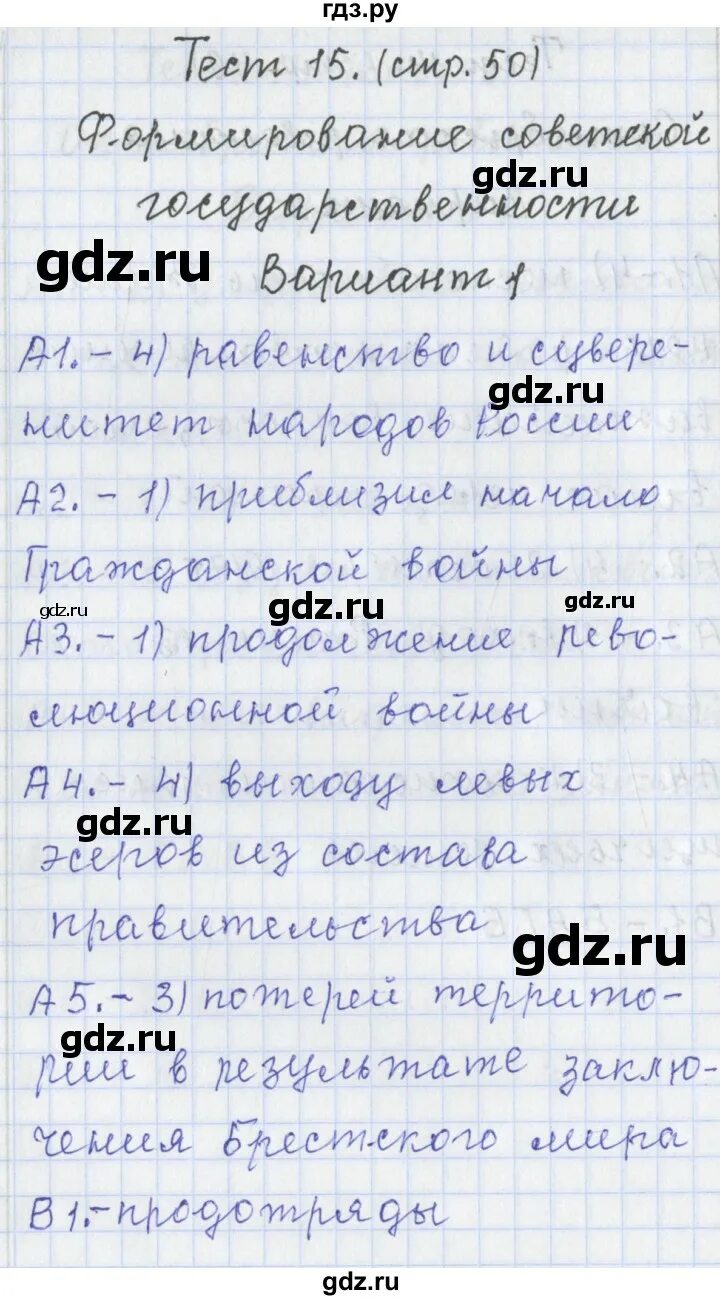 гдз.ру
Тест 15. (стр. 50)
Формирование советской
gdz.ru
государственности
gdz.ru
Вариант 1
А1. - 4) равенство и сувере-
gdz.ru
нитет народов России
А2. - 1) приблизил начало
Гражданской войны
gdz.ru
gdz.ru
gdz.ru
А3. - 1) продолжение рево-
люционной войны
А4. - 4) выходу левых
gdz.ru
эсеров из состава
правительства
gdz.ru
А5. - 3) потерей террито-
gdz.ru
рии в результате заклю-
чения Брестского мира
В1. - продотряды
gdz.ru